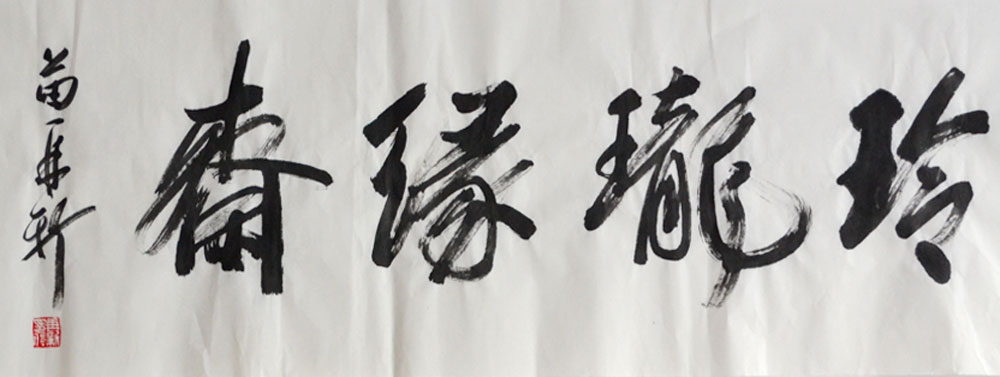 玲瓏緣齋
苗再新